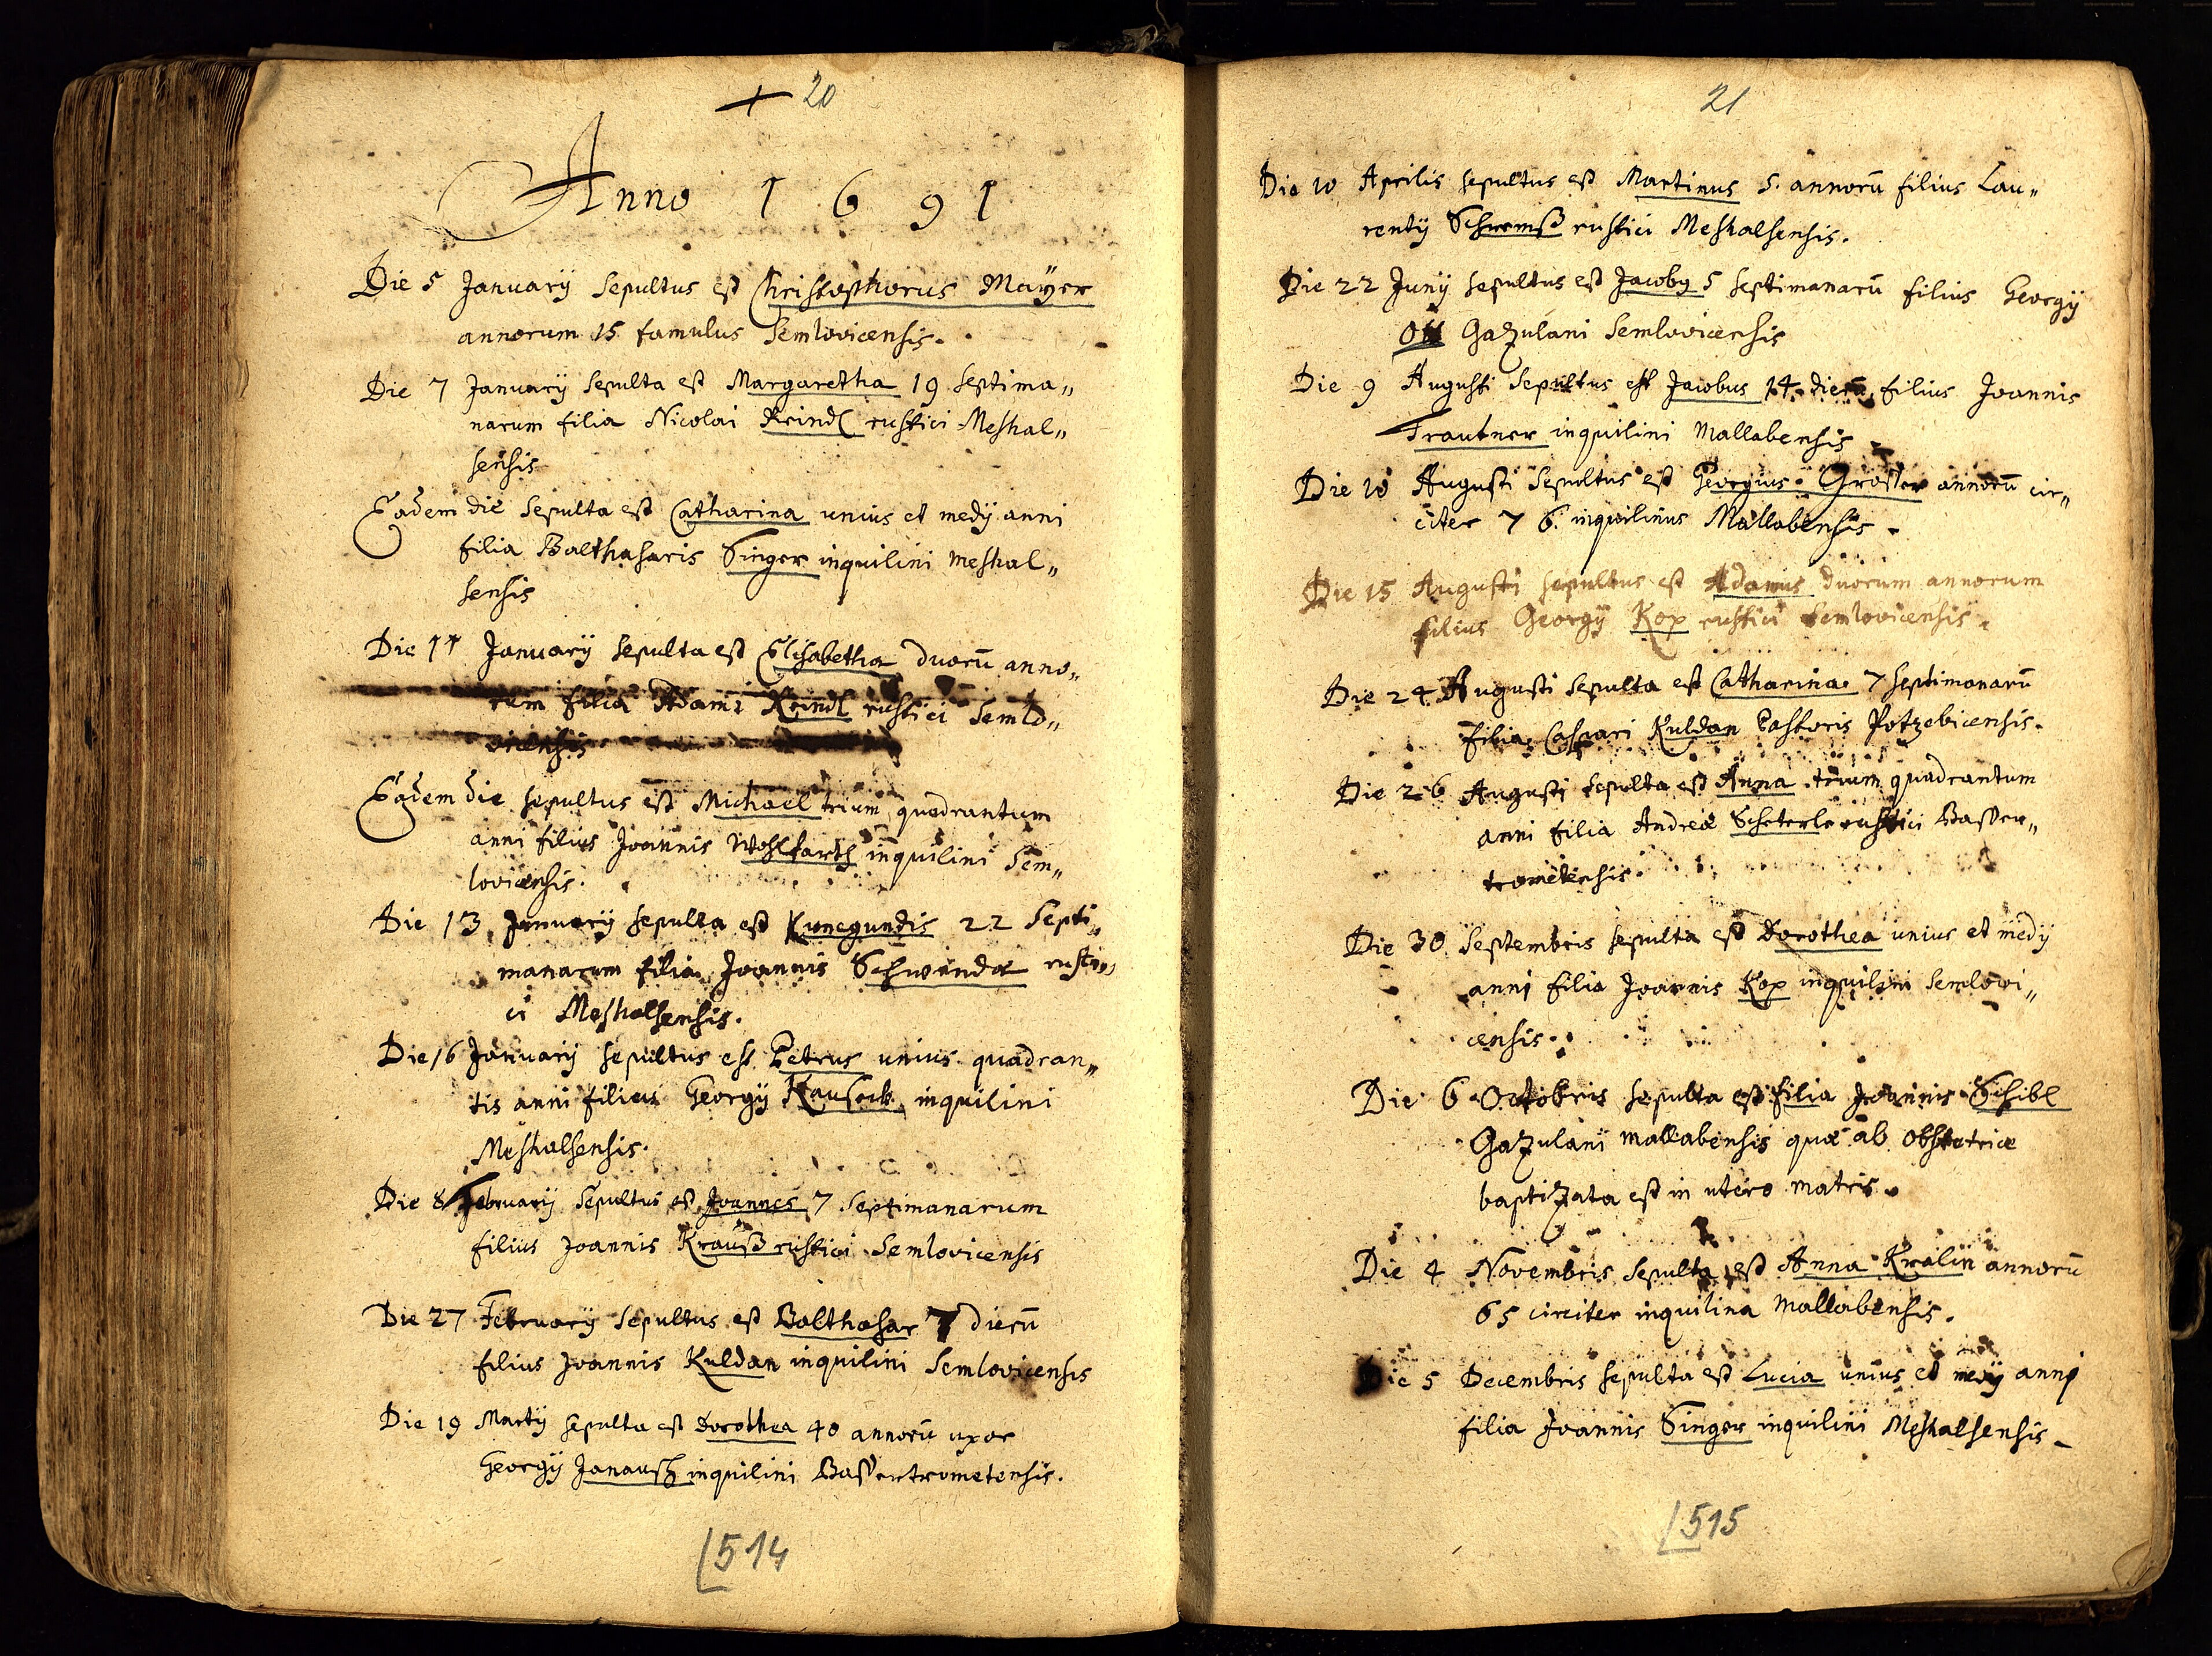 20
Anno 1691
Die 5 Januarij Sepultus est Christophorus Mayer
annorum 15 famulus Semlovicensis.
Die 7 Januarij Sepulta est Margaretha 19 Septima„
narum filia Nicolai Reindl rustici Meshal„
sensis
Eadem die Sepulta est Catharina unius et medij anni
filia Balthasaris Singer inquilini Meshal„
sensis
Die 11 Januarij Sepulta est Elisabetha duorū anno„
rum filia Adami Reindl rustici Semlo„
vicensis
Eadem die Sepultus est Michael trium quadrantum
anni filius Joannis Wohlfarth inquilini Sem„
lovicensis.
Die 13 Januarij Sepulta est Kunegundis 22 Septi„
manarum filia Joannis Schwanda rusti„
ci Meshalsensis.
Die 16 Januarij Sepultus est Petrus unius quadran„
tis anni filius Georgij inquilini
Meshalsensis.
Die 8 Februarij Sepultus est Joannes 7 Septimanarum
filius Joannis Krauß rustici Semlovicensis
Die 27 Februarij Sepultus est Balthasar 7 dierū
filius Joannis Kuldan inquilini Semlovicensis
Die 19 Martij Sepulta est Dorothea 40 annorū uxor
Georgij Janausch inquilini Bassertrometensis.
514
21
Die 10 Aprilis sepultus est Martinus 5. annorū filius Lau„
rentij rustici Meshalsensis.
Die 22 Junij sepultus est Jacobg 5 septimanarū filius Georgij
Ott Gazulani Semlovicensis
Die 9 Augusti Sepultus est Jacobus 14 dierū filius Joannis
Trautner inquilini Mallabensis
Die 10 Augusti Sepultus est Georgius annorū cir„
citer 76. inquilinus Mallabensis.
Die 15 Augusti sepultus est Adamus duorum annorum
filius Georgij Kop rustici Semlovicensis.
Die 24 Augusti Sepulta est Catharina 7 septimanarū
filia Caspari Kuldan Pastoris Potzebicensis.
Die 26 Augusti Sepulta est Anna trium quadrantum
anni filia Andreæ Scheterle rustici Basser„
trometensis.
Die 30 Septembris sepulta est Dorothea unius et medij
anni filia Joannis Kop inquilini Semlowi„
censis.
Die 6 Octobris Sepulta est filia Joannis Schibl
Gazulani Mallabensis quæ ab obstetrice
baptizata est in utero matris.
Die 4 Novembris Sepulta est Anna Kralin annorū
65 circiter inquilina Mallabensis.
Die 5 Decembris sepulta est Lucia unius et medij anni
filia Joannis Singer inquilini Meshalsensis
515